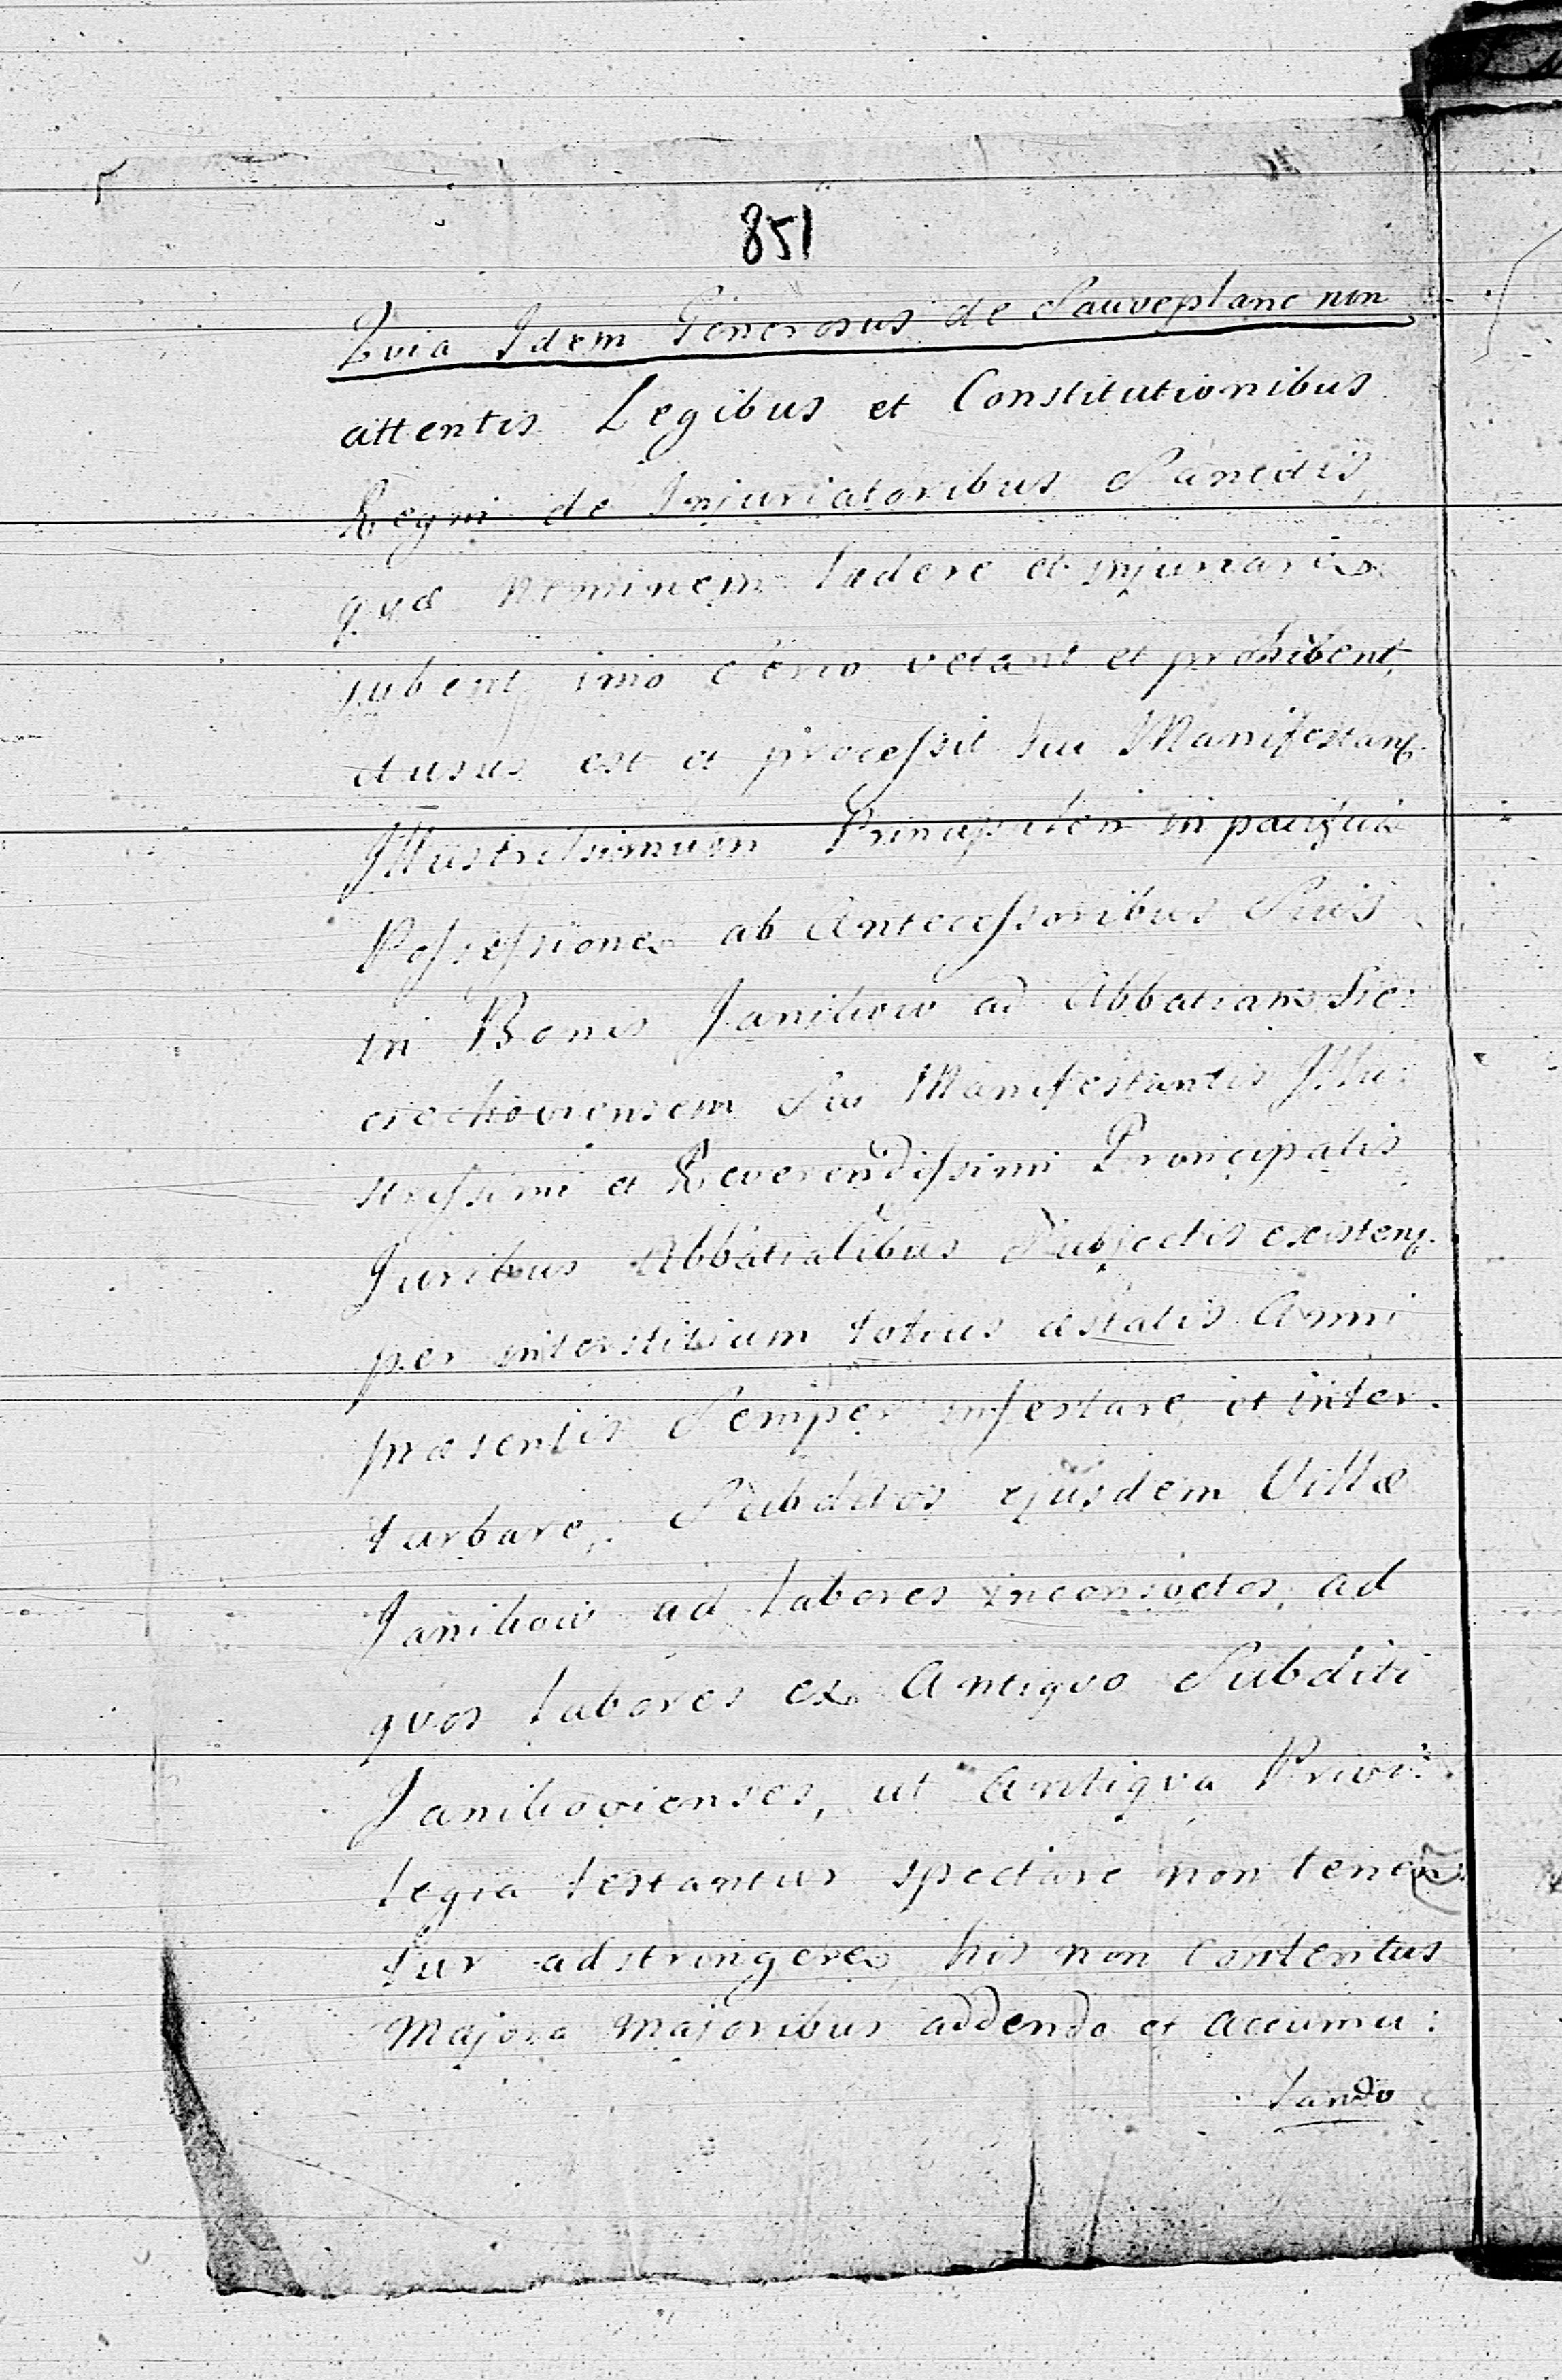 851
Qvia Idem Generosus de Sauveplanc non
attentis Legibus et Constitutionibus
Regni de Injuriatoribus Sancitis,
qvæ neminem lædere et injuriare
jubent, imo serio vetant et prohibent,
ausus est et processit sui Manifestan.
Illustrissimum Principalem in pacifica
Possessione ab Antecessoribus Suis
in Bonis Janikow ad Abbatiam Sie:
ciechoviensem sui Manifestantis Illu:
strissimi et Reverendissimi Principalis
Juribus Abbatialibus Subjectis existen.
per interstitium totius æstatis Anni
præsentis Semper infestare, et inter.
turbare, Subditos ejusdem Villæ
Janikow ad labores inconsvetos, ad
qvos labores ex Antiqvo Subditi
Janikovienses, ut antiqva Privi:
legia testantur spectare non tenen:
tur adstringere, his non contentus
majora majoribus addendo et accumu:
lando